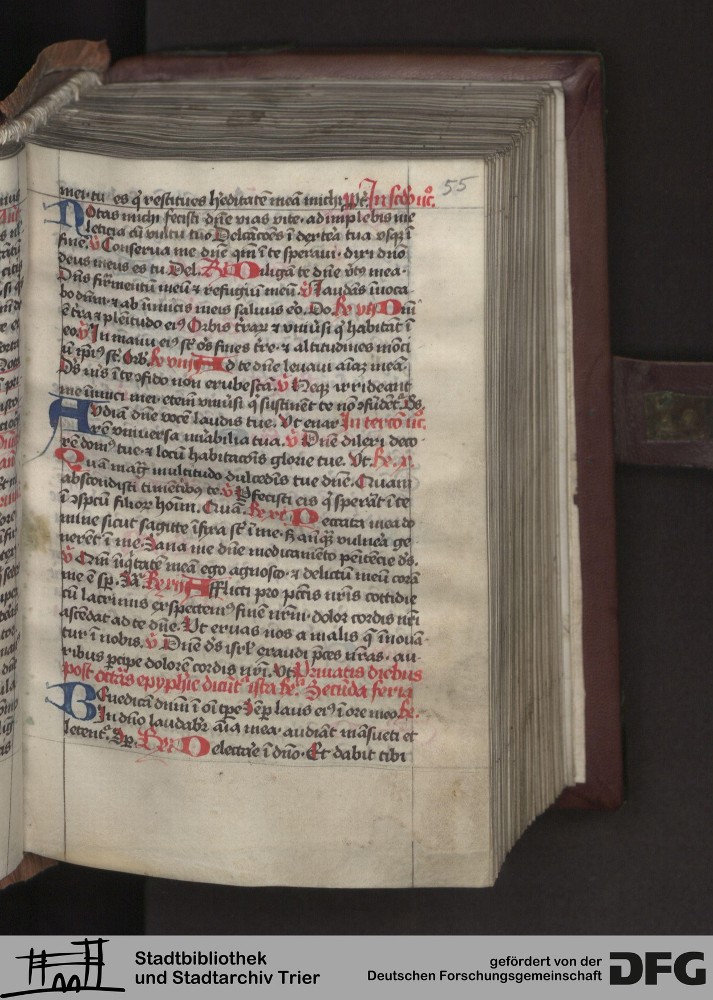 55
mei· tu es q̄ restitues hēditatē meā michi In scd̓o
Notas michi fecisti dn̄e vias vite· adimplebis me
leticia cū vultu tuo Delcācōes ī dextēa tua vsq̄ ī
finē. v̄ Conserua me dn̄e qm̄ ī te speraui· dixi dn̄o
deus meus es tu Del. Diligā te dn̄e v̓t mea·
Dn̄s firmentū meū ⁊ refugiū meū. v̄ laudās īuoca
bo dn̄m· ⁊ ab īimicis meis saluus eo. Do. Dn̄i
ē tr̄a ⁊ plenitudo ei⁹ Orbis tr̄arꝫ ⁊ vniūsi q̄ habitāt ī
eo v̄ In manu ei⁹ st̄ oēs fines tr̄e· ⁊ altitudines mōci
ū ip̄i⁹ st̄. Orb. Ad te dn̄e leuaui aīaꝫ meā·
Ds̄ me⁹ ī te ꝯfido non erubescā. v̄ Neqꝫ irrideant
me īimici mei· etem vniūsi q̄ sustinent te nō ꝯfūdēt᷑. Ds̄.
Audiā dn̄e vocē laudis tue. Vt enar In terco
rē vniuersa mirabilia tua. v̄ Dn̄e dilexi deco·
rē dom⁹ tue· ⁊ locū habitacōis glorie tue. Vt.
Quā magͣ multitudo dulcedis tue dn̄e. Quam
abscondisti timētibꝫ te. v̄ Pfecisti eis q̄ sperāt ī te
ī ꝯspcū filioꝝ hoīm. Quā. Peccata mea do
mine sicut sagitte īfixa st̄ ī me· ſꝫ anq̄ꝫ vulnēa ge
nerēt ī me. Sana me dn̄e medicamēto penitēcie ds̄.
v̄ Qm̄ iīqͥtatē meā ego agnosco· ⁊ delictū meū corā
me ē sp̄. Afflicti pro pctīs nr̄is cottidie
cū lacrimis exspectem⁹ finē nr̄m· dolor cordis nr̄i
ascēdat ad te dn̄e. Vt eruas nos a malis q̄ īnouā·
tur ī nobis. v̄ Dn̄e ds̄ isrl̄ exaudi p̄ces nr̄as· au·
ribus p̄cipe dolorē cordis nr̄i. Vt Priuatis diebus
post octās epyphīe dicūt᷑ ista Secūda feria
Benedicā dn̄m ī oī tp̄e Sēp laus ei⁹ ī ore meo
In dn̄o laudabr̄ aīa mea· audiāt māsueti et
letent᷑. Delectāe ī dn̄o· Et dabit tibi
Stadtbibliothek
und Stadtarchiv Trier
gefördert von der
Deutschen Forschungsgemeinschaft DFG